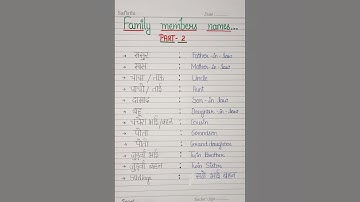 Family members names...
PART- 2
→ ससुर : Father-in-law
→ सास : Mother-in-law
→ चाचा / ताऊ : Uncle
→ चाची / ताई : Aunt
→ दामाद : Son-in-law
→ बहू : Daughter-in-law
→ चचेरा भाई/बहन : Cousin
→ पोता : Grandson
→ पोती : Grand daughter
→ जुड़वाँ भाई : Twin Brother
→ जुड़वाँ बहन : Twin Sister
→ Siblings : सगे भाई बहन